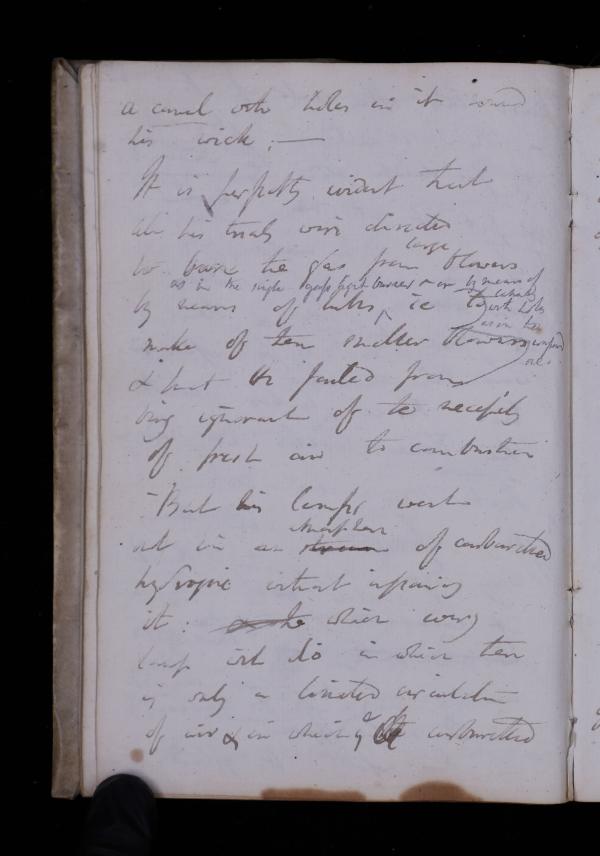 a canal with holes in it round
his wick. —
It is perfectly evident that
all his trials were directed
to burn the gas from large blowers
as in the single or by means of
by means of tubes ie with holes
make of them smaller blowers
as in the
& that He failed from
being ignorant of the necessity
of fresh air to combustion
But his lamps went
out in an atmosphere of carburetted
hydrogene without inflaming
it: which every
lamp will do in which there
is only a limited circulation
of air & in which carburetted